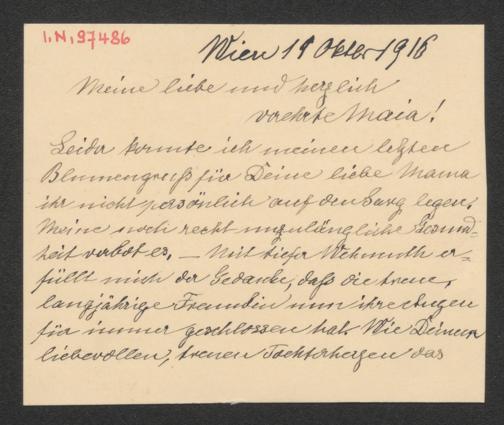 I.N. 97486
Wien 19 Oktber 1916
Meine liebe und herzlich
verehrte Maia!
Leider konnte ich meinen letzten
Blumengruß für Deine liebe Mama
ihr nicht persönlich auf den Sarg legen.
Meine noch recht unzulängliche Gesund=
heit verbot es. — Mit tiefer Wehmuth er=
füllt mich der Gedanke, daß die treue,
langjährige Freundin nun ihre Augen
für immer geschlossen hat. Wie Deinem
liebevollen, treuen Tochterherzen das